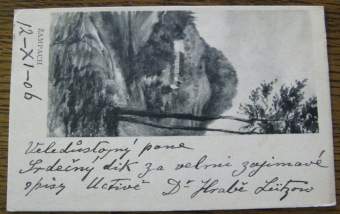 ŽAMPACH
12-XI-06
Veledůstojný pane
Srdečný dík za velmi zajimavé
spisy Uctivě Dr Hrabě Lützow